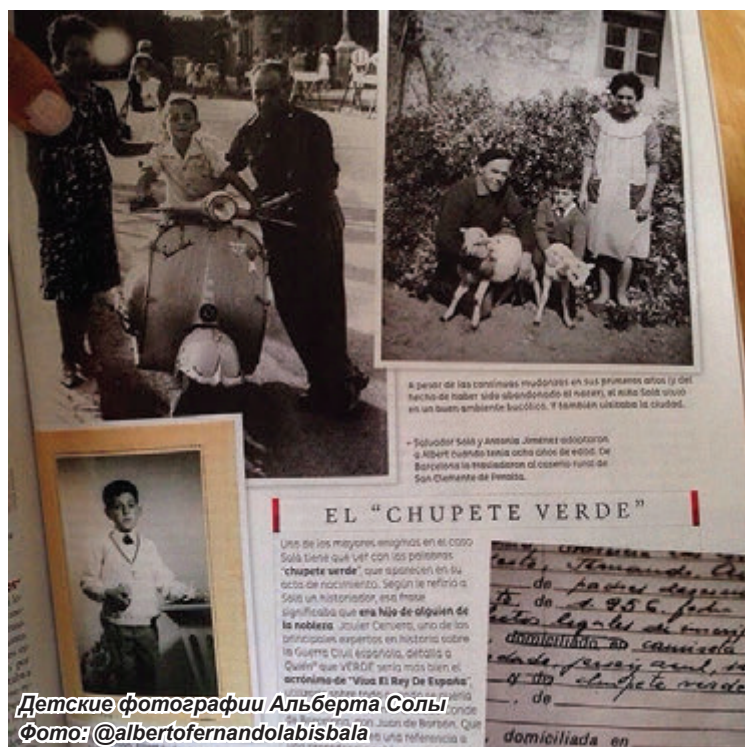 A pesar de las continuas mudanzas en sus primeros años (y del
hecho de haber sido abandonado al nacer), el niño Solá vivió
en un buen ambiente bucólico. Y también visitaba la ciudad.
– Salvador Solá y Antonia Jiménez adoptaron
a Albert cuando tenía ocho años de edad. De
Barcelona lo trasladaron al caserío rural de
San Clemente de Peralta.
EL "CHUPETE VERDE"
Uno de los mayores enigmas en el caso
Solá tiene que ver con las palabras
"chupete verde", que aparecen en su
acta de nacimiento. Según le refirió a
Solá un historiador, esa frase
significaba que era hijo de alguien de
la nobleza. Javier Cervera, uno de los
principales expertos en historia sobre
la Guerra Civil española, detalla a
Quién® que VERDE sería más bien el
acrónimo de "Viva El Rey De España",
Don Juan de Borbón. Que
una referencia a
de padres
de
de 1.956.
domiciliado en camisola
jersey azul,
y chupete verde
, de
domiciliada en
Детские фотографии Альберта Солы
Фото: @albertofernandolabisbala